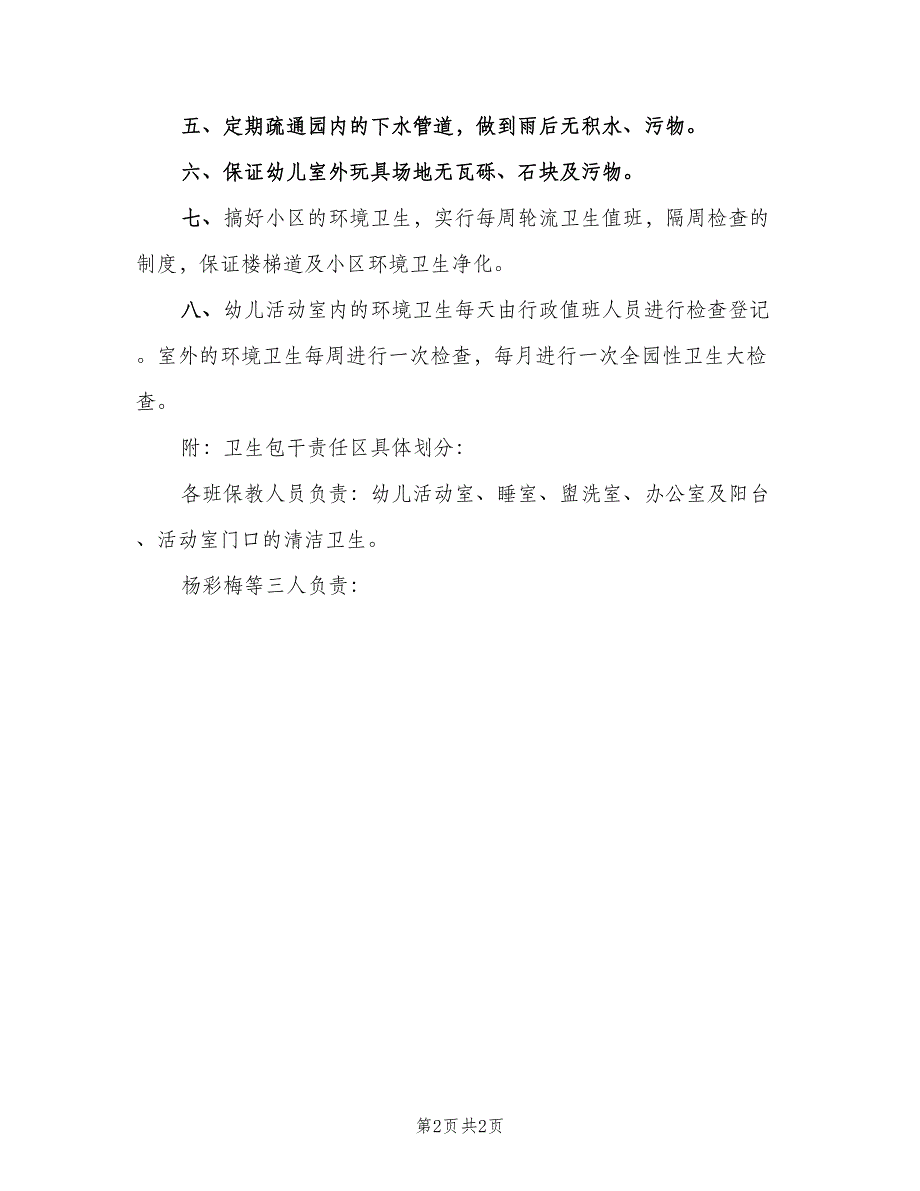 五、定期疏通园内的下水管道，做到雨后无积水、污物。
六、保证幼儿室外玩具场地无瓦砾、石块及污物。
七、搞好小区的环境卫生，实行每周轮流卫生值班，隔周检查的
制度，保证楼梯道及小区环境卫生净化。
八、幼儿活动室内的环境卫生每天由行政值班人员进行检查登记
。室外的环境卫生每周进行一次检查，每月进行一次全园性卫生大检
查。
附：卫生包干责任区具体划分：
各班保教人员负责：幼儿活动室、睡室、盥洗室、办公室及阳台
、活动室门口的清洁卫生。
杨彩梅等三人负责：
第2页 共2页